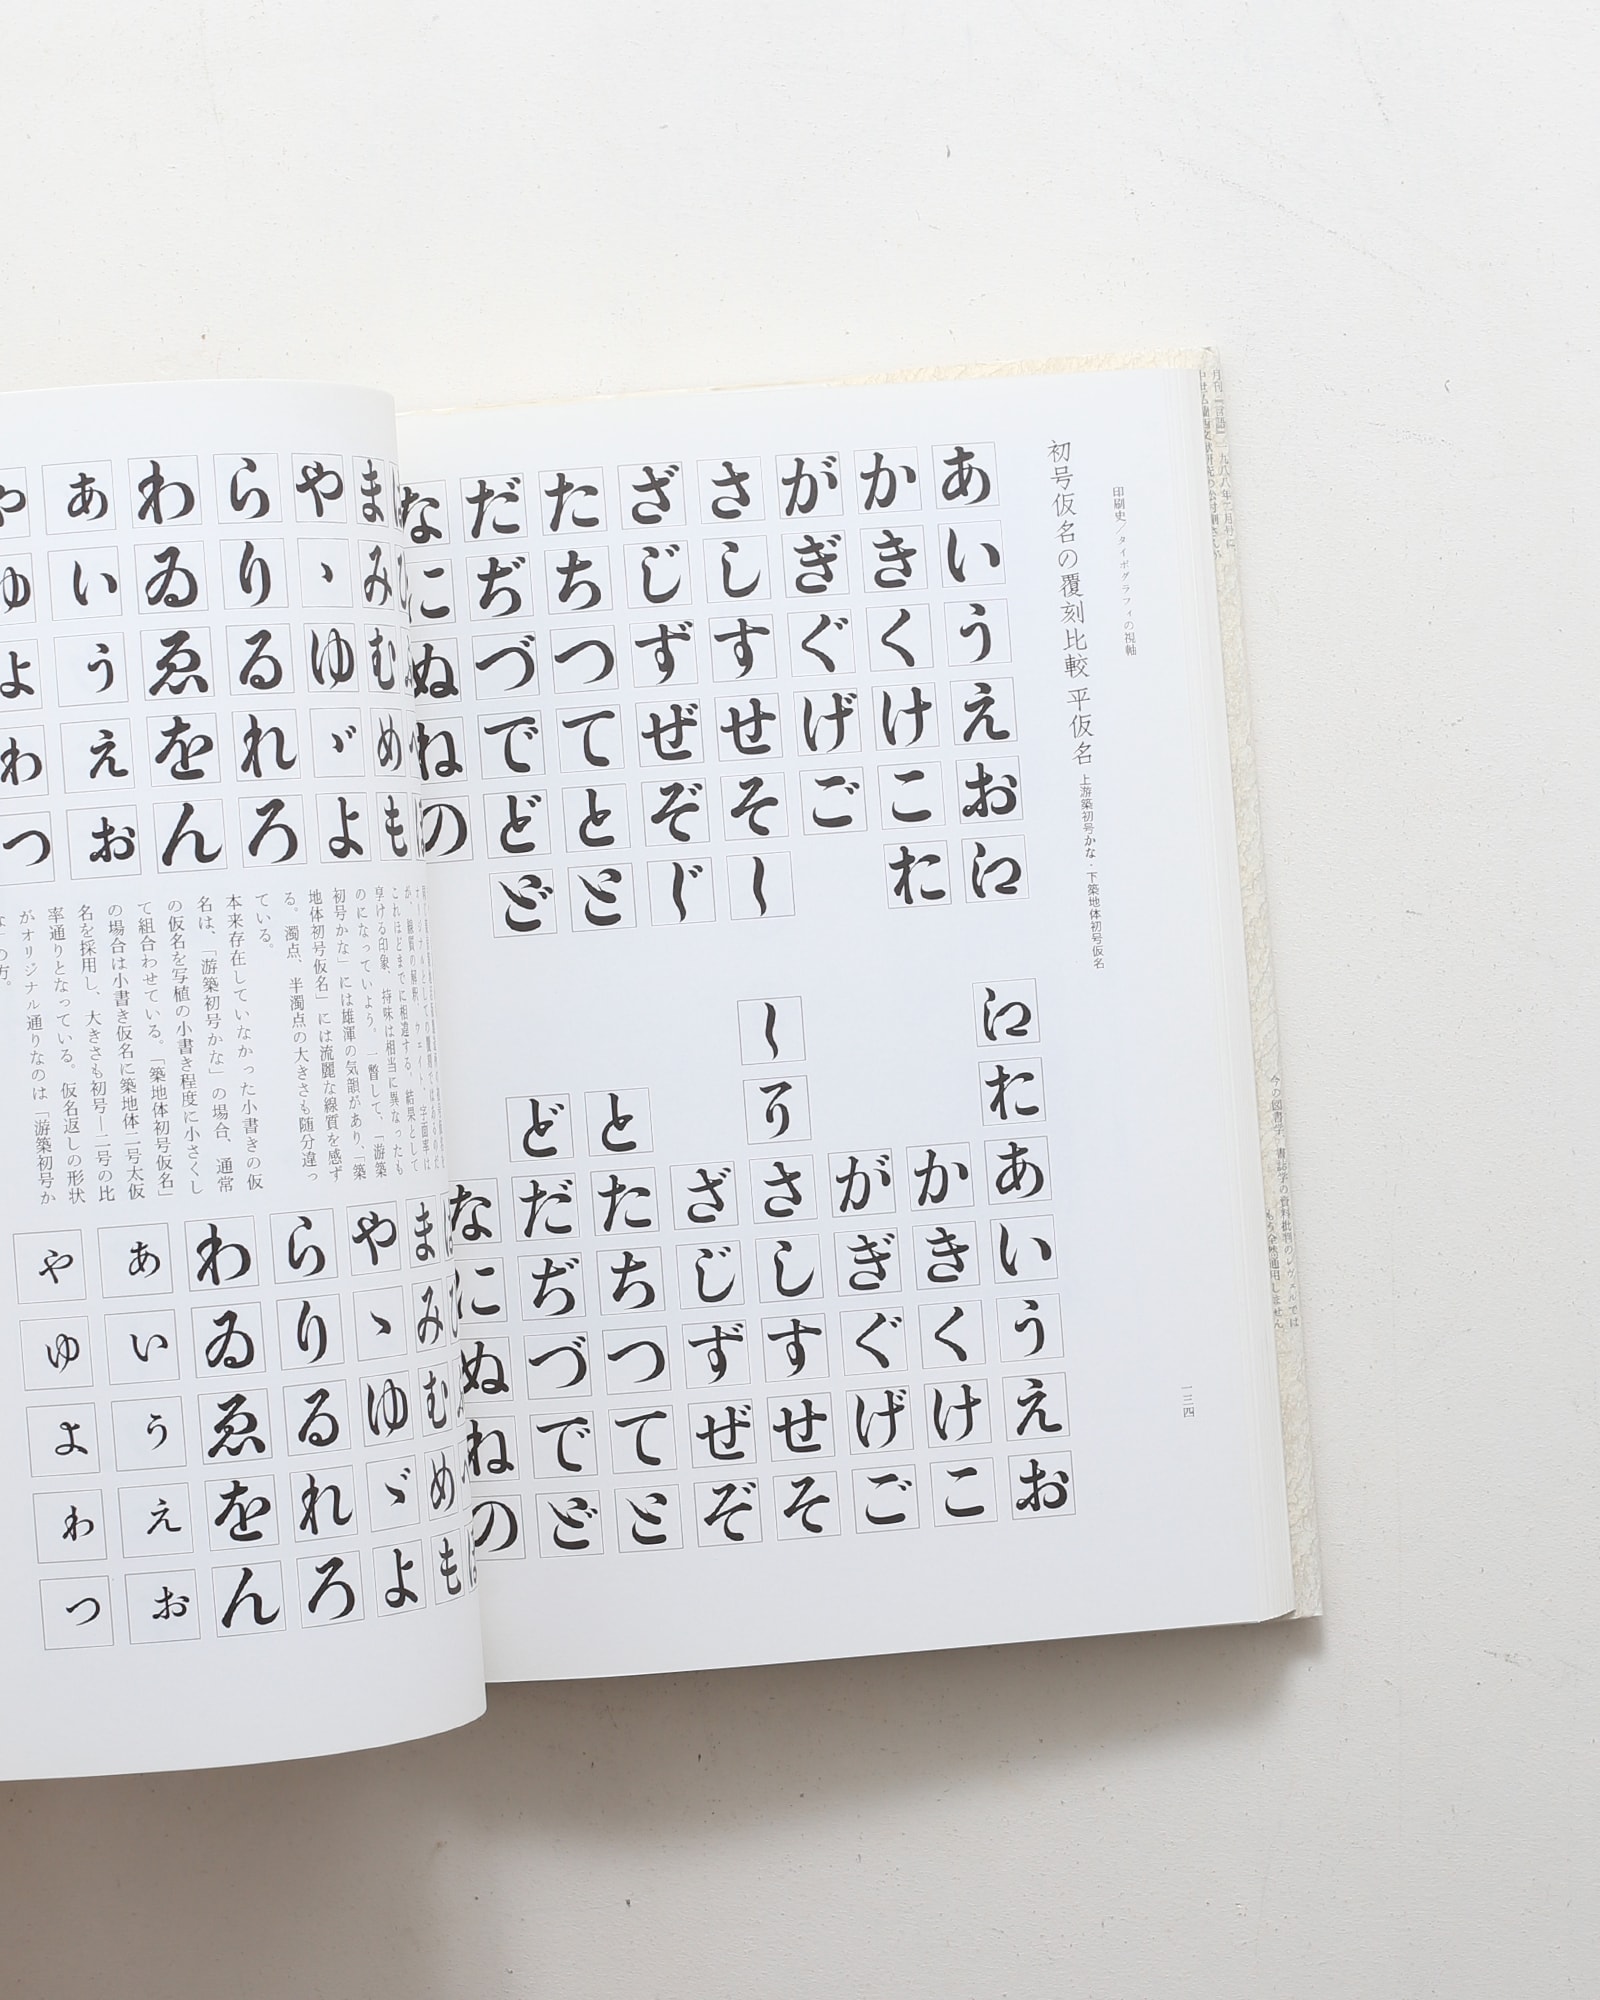 印刷史／タイポグラフィの視軸
初号仮名の覆刻比較 平仮名 上游築初号かな・下築地体初号仮名
あいうえお
かきくけこ
がぎぐげご
さしすせそ
ざじずぜぞ
たちつてと
だぢづでど
なにぬねの
あいうえお
かきくけこ
がぎぐげご
さしすせそ
ざじずぜぞ
と
たちつてと
ど
だぢづでど
なにぬねの
一三四
まみむめも
やゝゆゞよ
らりるれろ
わゐゑをん
あいうえお
やゆよわつ
これほどまでに相違する。結果として
享ける印象、持味は相当に異なったも
のになっていよう。一瞥して、「游築
初号かな」には雄渾の気韻があり、「築
地体初号仮名」には流麗な線質を感ず
る。濁点、半濁点の大きさも随分違っ
ている。
本来存在していなかった小書きの仮
名は、「游築初号かな」の場合、通常
の仮名を写植の小書き程度に小さくし
て組合わせている。「築地体初号仮名」
の場合は小書き仮名に築地体二号太仮
名を採用し、大きさも初号―二号の比
率通りとなっている。仮名返しの形状
がオリジナル通りなのは「游築初号か
の方。
まみむめも
やゝゆゞよ
らりるれろ
わゐゑをん
あいうえお
やゆよわつ